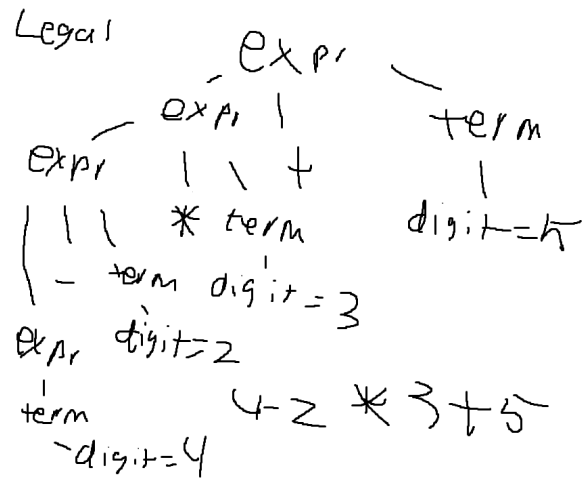 Legal
expr
expr
term
expr
* term + digit=5
- term digit=3
expr digit=2
term
4-2 * 3+5
digit=4